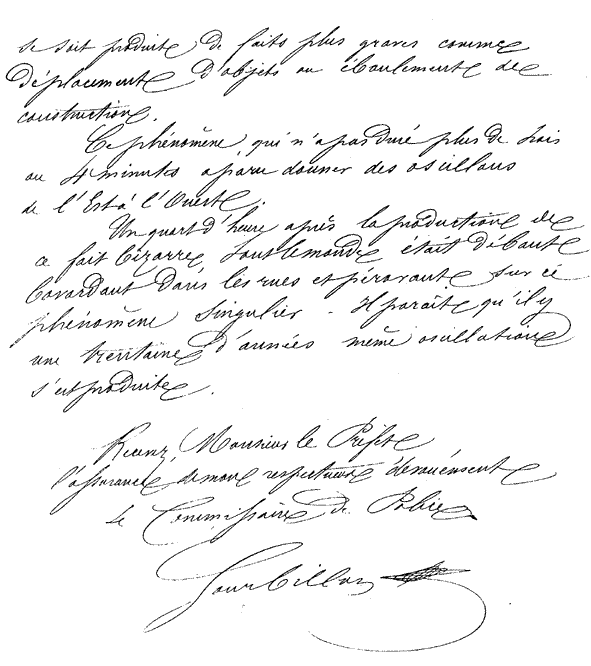 se soit produite de faits plus graves comme
déplacement d'objets ou éboulement de
construction.
Ce phénomène, qui n'a pas duré plus de trois
ou 4 minutes a paru donner des osillons
de l'Est à l'Ouest.
Un quart d'heure après la production de
ce fait bizarre tout le monde était debout
bavardant dans les rues et pérorant sur ce
phénomène singulier. Il paraît qu'il y
une trentaine d'années même oscillation
s'est produite.
Recevez, Monsieur le Préfet
l'assurance de mon respectueux dévouement
Le Commissaire de Police
Gourbillon